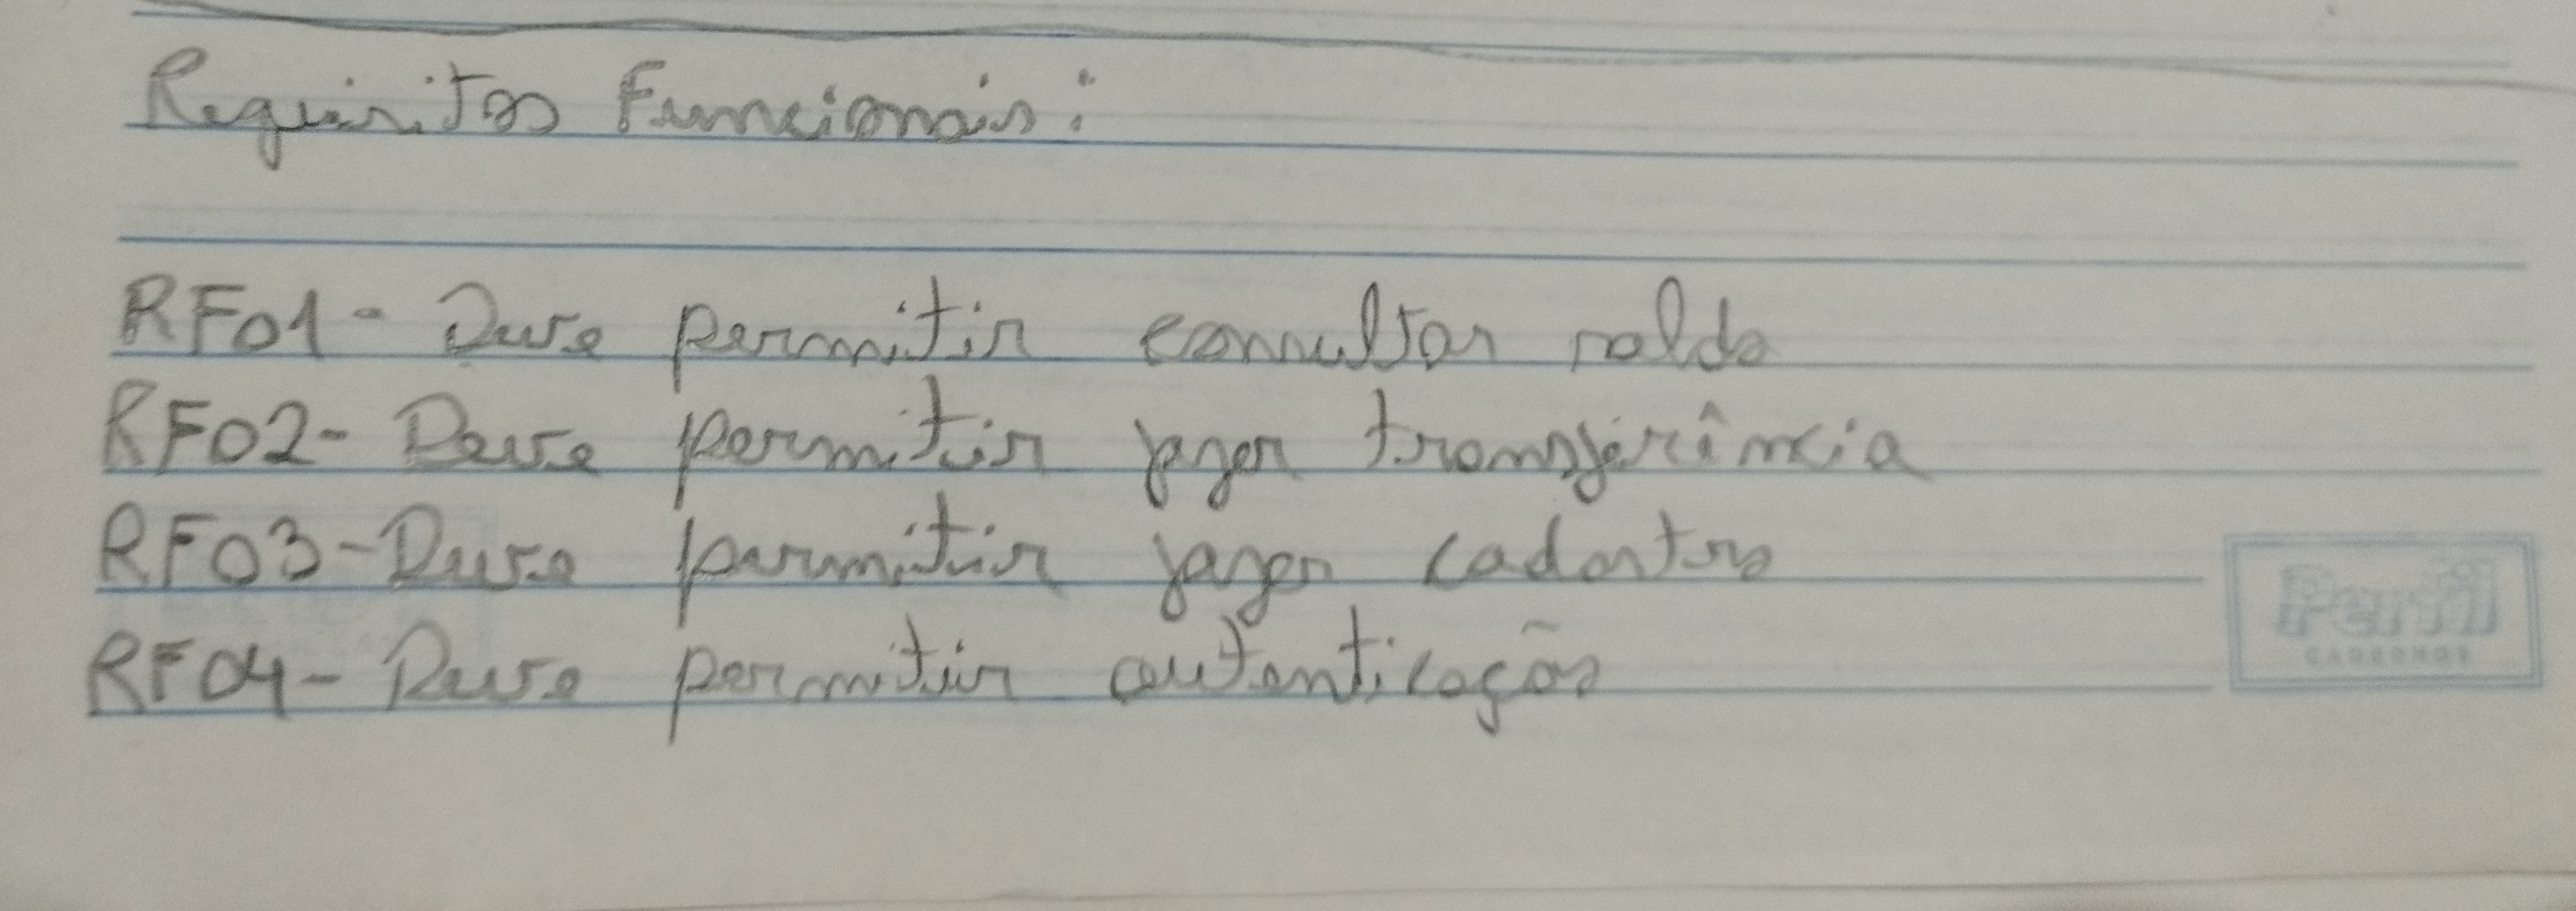 Requisitos Funcionais:
RF01- Deve permitir consultar saldo
RF02- Deve permitir fazer transferência
RF03- Deve permitir fazer cadastro
RF04- Deve permitir autenticação
Perfil
CADERNOS